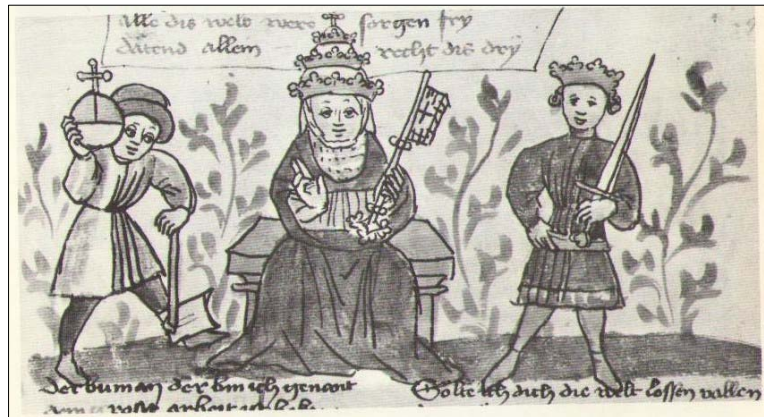 Alle dis welt were sorgen fry
dätend allem recht dis dry
der buman der bin ich genant
Solte ich dich die welt lossen vallen
arbeit